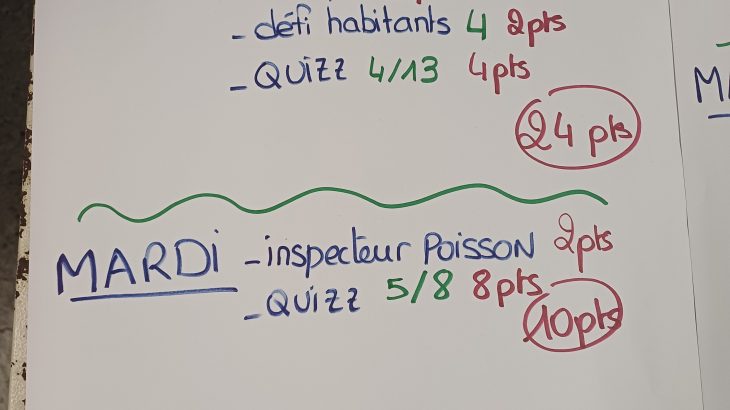 - défi habitants 4 2pts
- QUIZZ 4/13 4pts
24 pts
MARDi - inspecteur POISSON 2pts
- QUIZZ 5/8 8pts
10pts